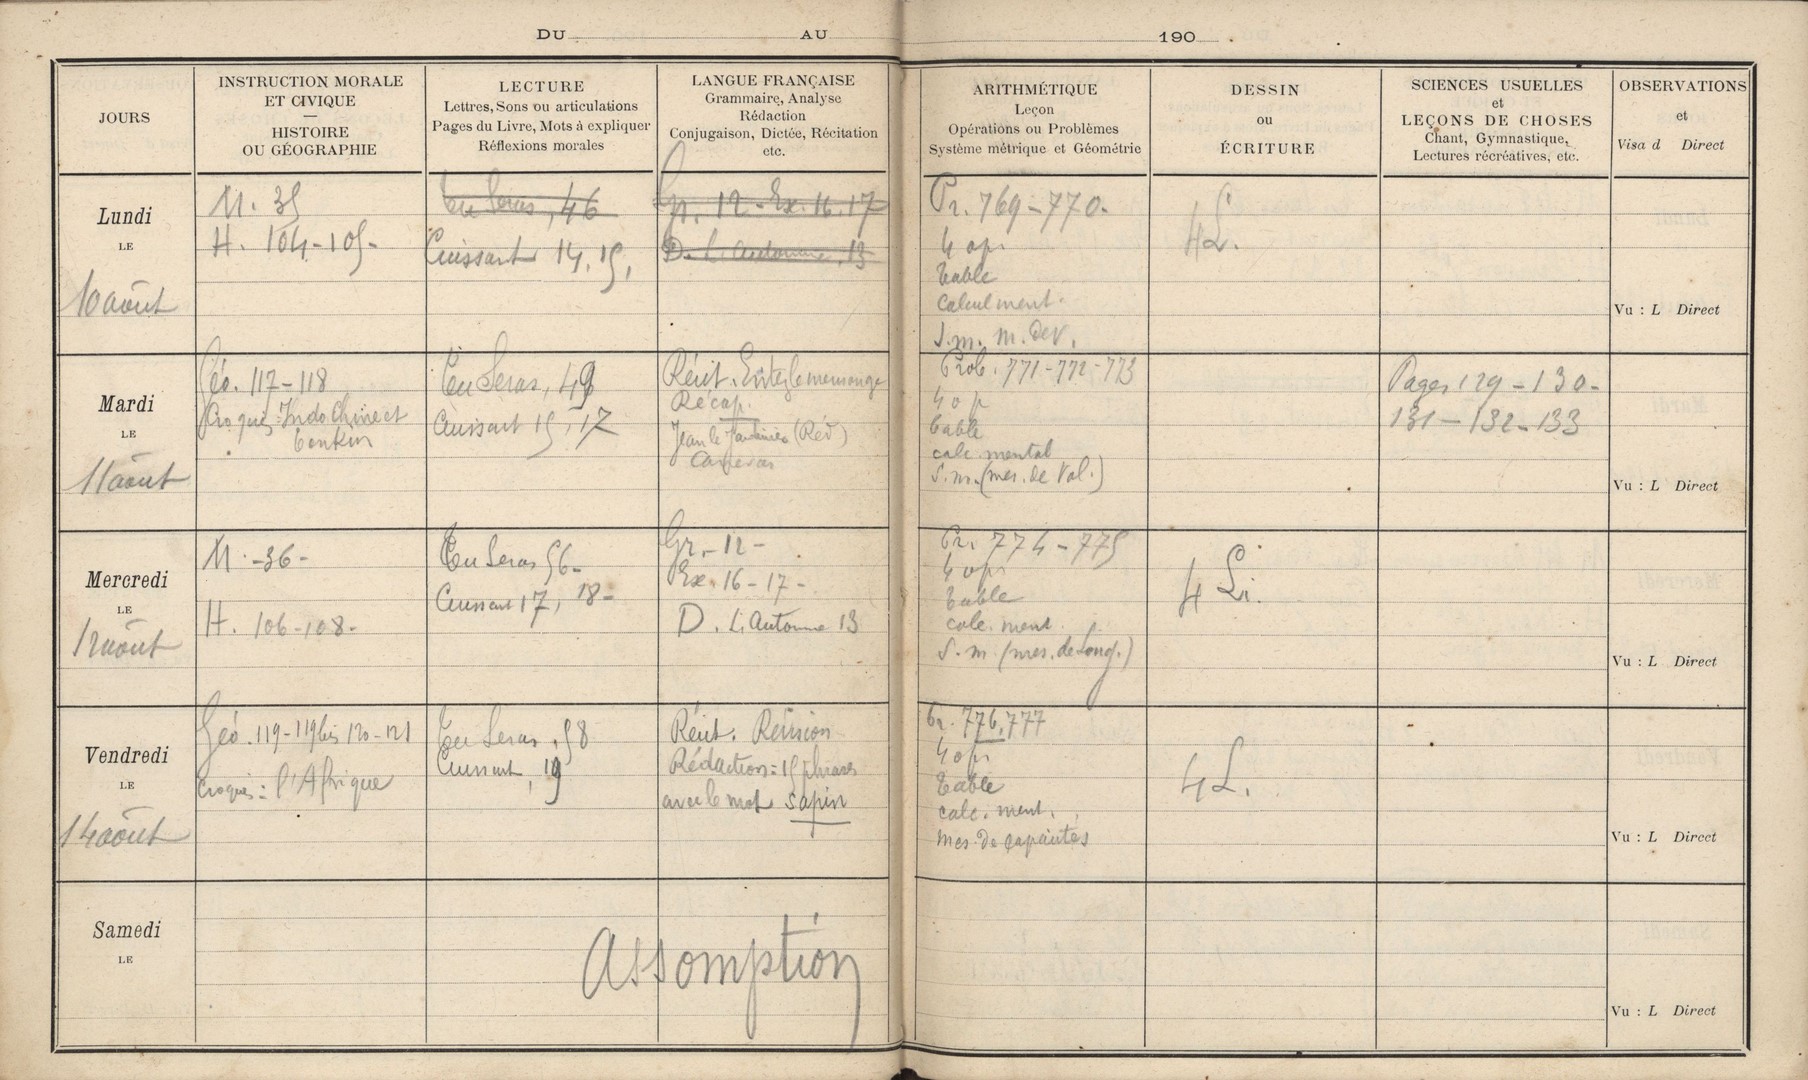 DU AU 190 .
JOURS
INSTRUCTION MORALE
ET CIVIQUE
—
HISTOIRE
OU GÉOGRAPHIE
LECTURE
Lettres, Sons ou articulations
Pages du Livre, Mots à expliquer
Réflexions morales
LANGUE FRANÇAISE
Grammaire, Analyse
Rédaction
Conjugaison, Dictée, Récitation
etc.
ARITHMÉTIQUE
Leçon
Opérations ou Problèmes
Système métrique et Géométrie
DESSIN
OU
ÉCRITURE
SCIENCES USUELLES
et
LEÇONS DE CHOSES
Chant, Gymnastique,
Lectures récréatives, etc.
OBSERVATIONS
et
Visa d Direct
Lundi
LE
10 août
M. 35
H. 104-105-
Tu Seras, 46
Cuissart 14, 15,
Gr. 12 - Ex. 16. 17
D. L'automne, 13
Pr. 769-770-
4 op.
Table
calcul ment.
S. m. m. Dev.
4 L.
Vu : L Direct
Mardi
LE
11 août
Géo. 117-118
Croquis: Indo Chine et
Tonkin
Tu Seras, 49
Cuissart 15, 17
Récit. Evitez le mensonge
Récap.
Jean le Jardinier (Réd)
Prob. 771-772-773
4 op
Table
calc. mental
S. m. (mes. de Vol.)
Pages 129-130-
131-132-133
Vu : L Direct
Mercredi
LE
12 août
M. -36-
H. 106-108-
Tu Seras 56-
Cuissart 17, 18-
Gr. -12-
Ex. 16-17-
D. L'Automne 13
Pr. 774-775
4 op.
Table
calc. ment.
S. m. (mes. de Long.)
4 Li.
Vu : L Direct
Vendredi
LE
14 août
Géo. 119-119bis 120-121
croquis: l'Afrique
Tu Seras, 58
Cuissart, 19
Récit. Révision
Rédaction: 15 phrases
avec le mot sapin
Pr. 776, 777
4 op.
Table
calc. ment.
mes. de capacités
4 L.
Vu : L Direct
Samedi
LE
Assomption
Vu : L Direct